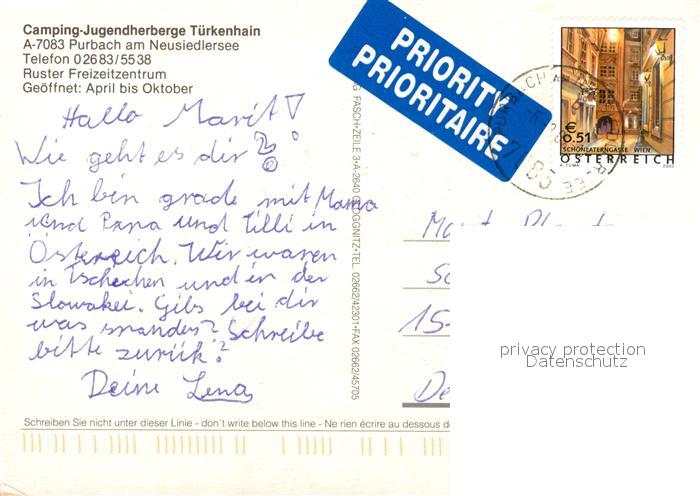 Camping-Jugendherberge Türkenhain
A-7083 Purbach am Neusiedlersee
Telefon 02683/5538
Ruster Freizeitzentrum
Geöffnet: April bis Oktober
PRIORITY
PRIORITAIRE
€ 0.51
SCHÖNLATERNGASSE WIEN
ÖSTERREICH
A. TUMA 2002
Hallo Marit!
Wie geht es dir?
Ich bin grade mit Mama
und und Tilli in
Österreich. Wir waren
in Tschechen und in der
Slowakei. Gibs bei dir
was Schreibe
bitte zurück!
Deine Lena
FASCH-ZEILE 3•A-2640 GLOGGNITZ•TEL. 02662/42301•FAX 02662/45705
15-
De
Schreiben Sie nicht unter dieser Linie - don't write below this line - Ne rien écrire au dessous de
privacy protection
Datenschutz